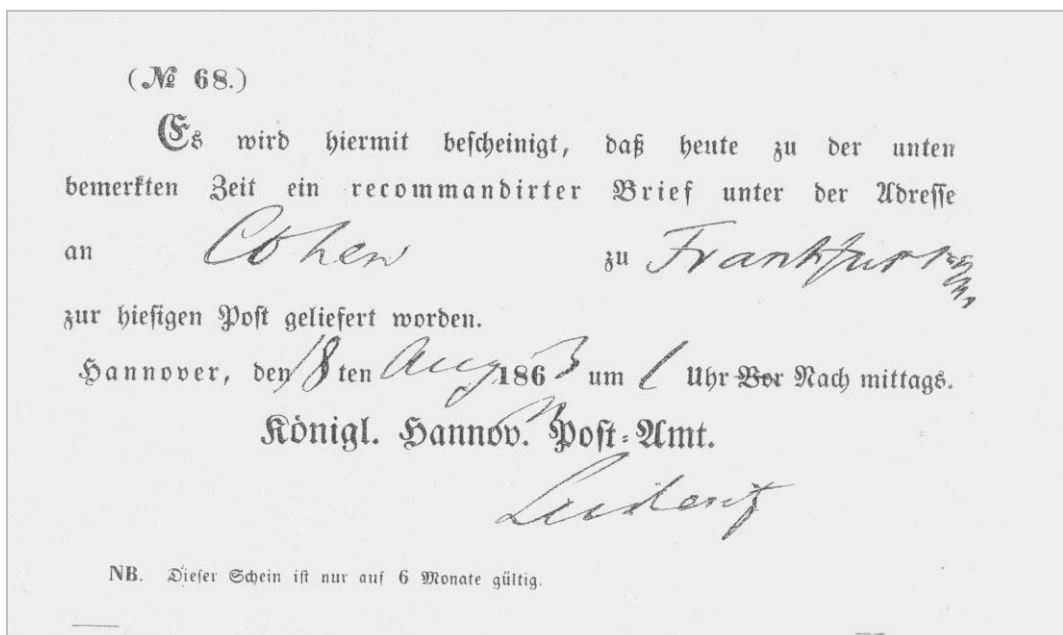 (№ 68.)
Es wird hiermit bescheinigt, daß heute zu der unten
bemerkten Zeit ein recommandirter Brief unter der Adresse
an Cohen zu Frankfurt
zur hiesigen Post geliefert worden.
Hannover, den 18 ten Aug 1863 um 1 Uhr Vor Nach mittags.
Königl. Hannov. Post-Amt.
NB. Dieser Schein ist nur auf 6 Monate gültig.